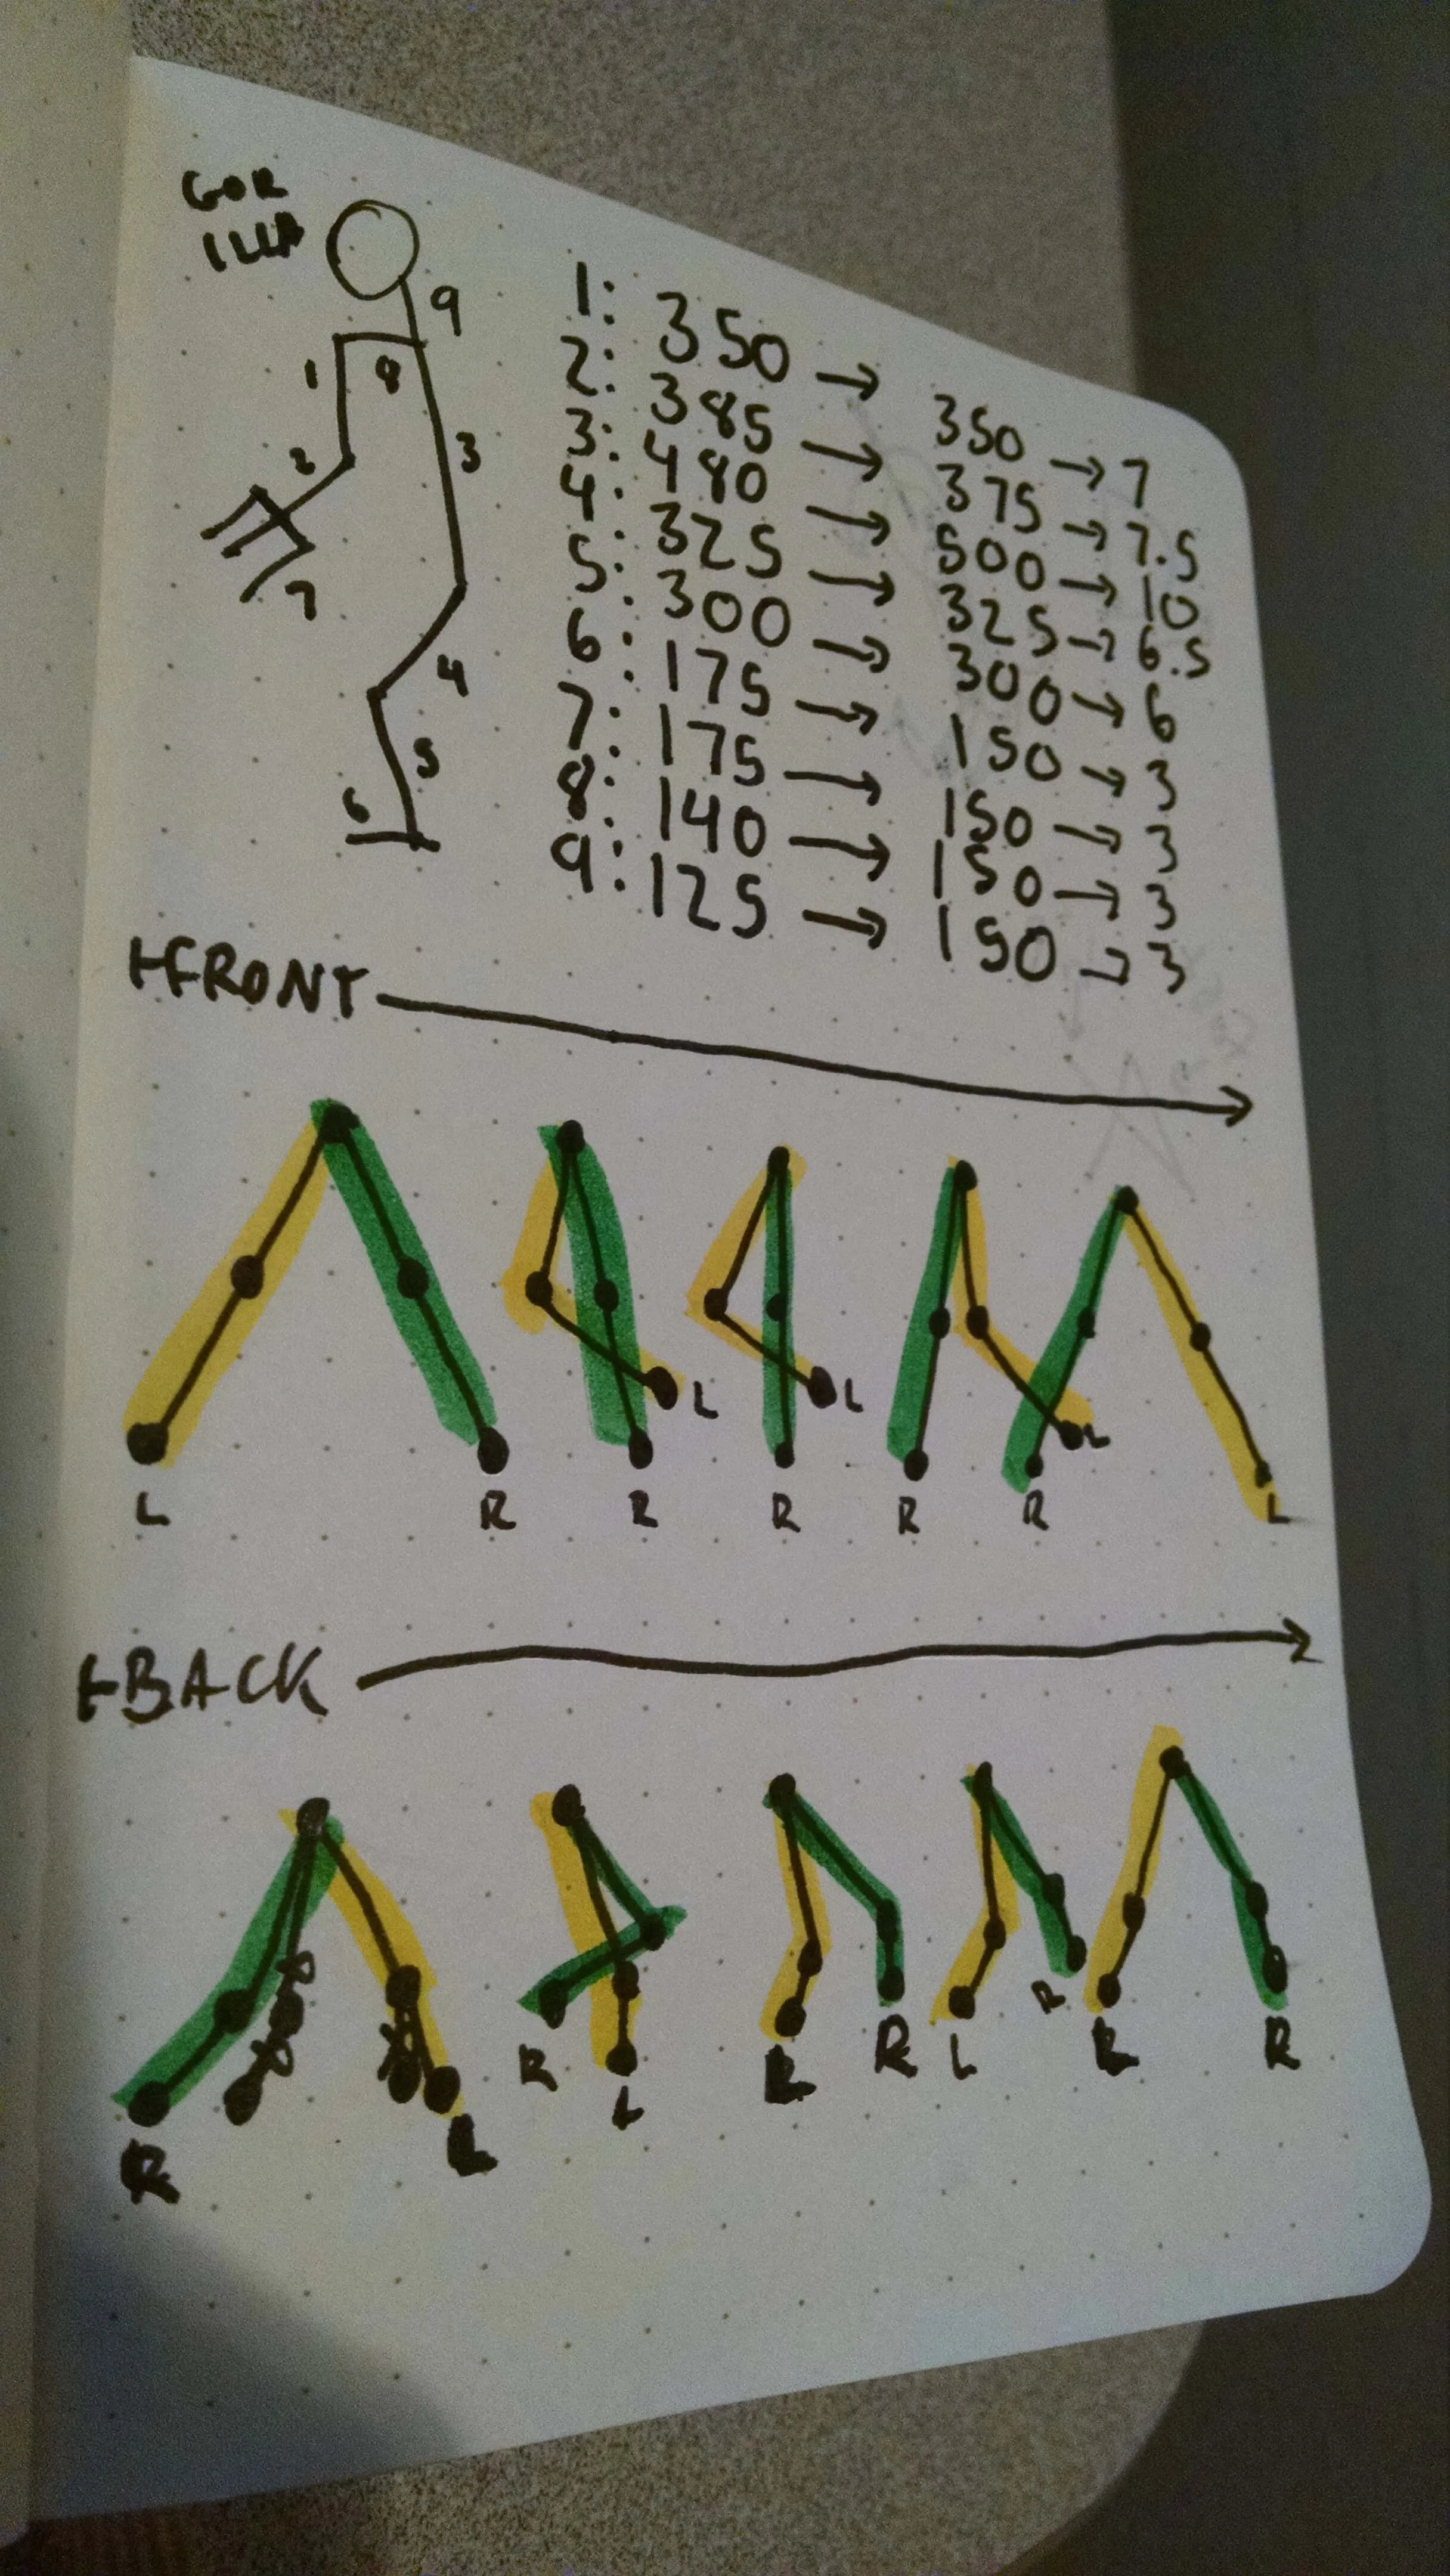 GOR
ILLA
9
1 8
2 3
7
4
5
6
1: 350 → 350 → 7
2: 385 → 375 → 7.5
3: 480 → 500 → 10
4: 325 → 325 → 6.5
5: 300 → 300 → 6
6: 175 → 150 → 3
7: 175 → 150 → 3
8: 140 → 150 → 3
9: 125 → 150 → 3
FRONT
L L L
L R R R R R L
BACK
R L R L L R L R L R